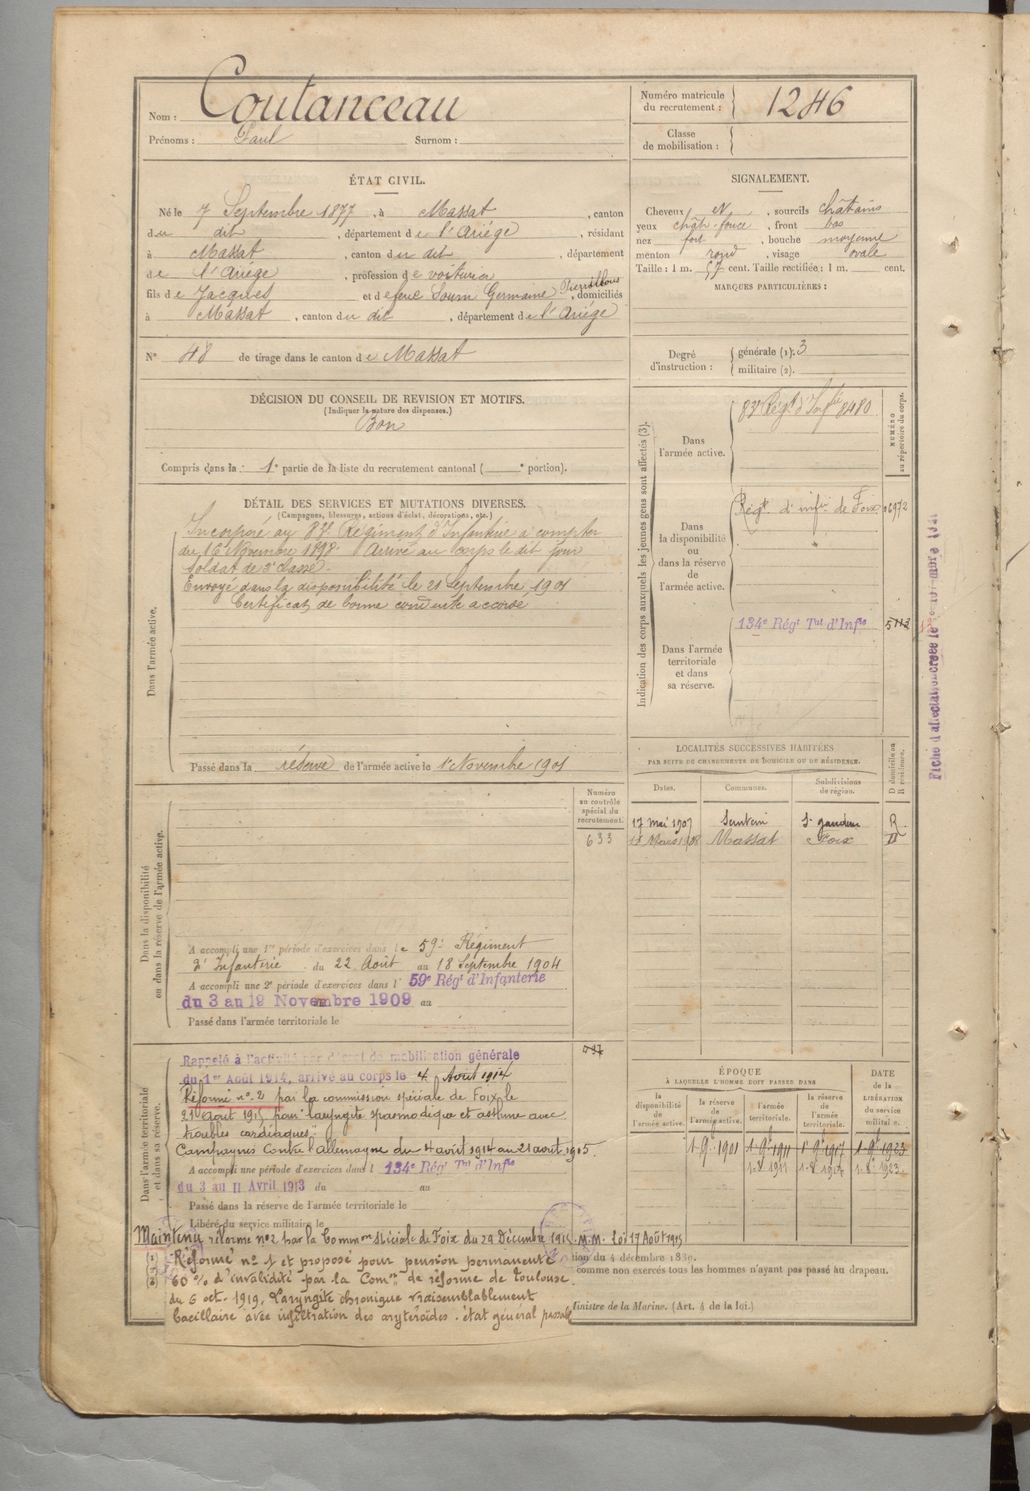 Nom : Coutanceau
Prénoms : Paul Surnom :
Numéro matricule du recrutement : 1246
Classe de mobilisation :
ÉTAT CIVIL.
Né le 7 Septembre 1877, à Massat, canton
du dit, département de l'Ariége, résidant
à Massat, canton du dit, département
de l'Ariége, profession de voiturier
fils de Jacques et de feue Soum Germaine, domiciliés
à Massat, canton du dit, département de l'Ariége
N° 48 de tirage dans le canton de Massat
SIGNALEMENT.
Cheveux et, sourcils châtains
yeux chât. foncé, front bas
nez fort, bouche moyenne
menton rond, visage ovale
Taille : 1 m. 57 cent. Taille rectifiée : 1 m. cent.
MARQUES PARTICULIÈRES :
Degré d'instruction : générale (1). 3
militaire (2).
DÉCISION DU CONSEIL DE REVISION ET MOTIFS.
(Indiquer la nature des dispenses.)
Bon
Compris dans la 1e partie de la liste du recrutement cantonal ( e portion).
DÉTAIL DES SERVICES ET MUTATIONS DIVERSES.
(Campagnes, blessures, actions d'éclat, décorations, etc.)
Dans l'armée active.
Incorporé au 83e Régiment d'Infanterie à compter
du 16 Novembre 1898. Arrivé au corps le dit jour
soldat de 2e classe.
Envoyé dans la disponibilité le 21 Septembre 1901
Certificat de bonne conduite accordé
Passé dans la réserve de l'armée active le 1er Novembre 1901
Indication des corps auxquels les jeunes gens sont affectés (3).
NUMÉRO au répertoire du corps.
Dans l'armée active.
83e Régt d'Infie 8480
Dans la disponibilité ou dans la réserve de l'armée active.
Régt d'infie de Foix 06972
Dans l'armée territoriale et dans sa réserve.
134e Régt Tal d'Infie
LOCALITÉS SUCCESSIVES HABITÉES
PAR SUITE DE CHANGEMENTS DE DOMICILE OU DE RÉSIDENCE.
Dates. Communes. Subdivisions de région. D domicile ou R résidence.
17 mai 1907 Sentein St gaudens R
Mars 1908 Massat Foix D
Numéro au contrôle spécial du recrutement.
633
Dans la disponibilité ou dans la réserve de l'armée active.
A accompli une 1re période d'exercices dans le 59e Régiment
d'Infanterie du 22 Août au 18 Septembre 1904
A accompli une 2e période d'exercices dans l 59e Régt d'Infanterie
du 3 au 19 Novembre 1909 au
Passé dans l'armée territoriale le
Dans l'armée territoriale et dans sa réserve.
Rappelé à l'activité par décret de mobilisation générale
du 1er Août 1914, arrivé au corps le 4 Août 1914
Réformé n° 2 par la commission spéciale de Foix le
21 Août 1915 pour "laryngite spasmodique et asthme avec
troubles cardiaques".
Campagnes Contre l'allemagne du 4 août 1914 au 21 août 1915.
A accompli une période d'exercices dans l 134e Régt Tal d'Infie
du 3 au 11 Avril 1913 du au
Passé dans la réserve de l'armée territoriale le
Libéré du service militaire le
ÉPOQUE
À LAQUELLE L'HOMME DOIT PASSER DANS
la disponibilité de l'armée active. la réserve de l'armée active. l'armée territoriale. la réserve de l'armée territoriale.
DATE de la LIBÉRATION du service militaire.
1. 9e 1901 1. 9e 1911 1. 9e 1917 1. 9e 1923
1. 8e 1911 1. 8e 1917 1. 8e 1923
Maintenu réforme n°2 par la Common Spéciale de Foix du 29 Décembre 1915. M.M. Loi 17 Août 1915
Réformé n° 1 et proposé pour pension permanente
60 % d'invalidité par la Comon de réforme de Toulouse
du 6 oct. 1919. Laryngite chronique vraisemblablement
bacillaire avec infiltration des aryténoïdes. état général passable
tion du 4 décembre 1889.
comme non exercés tous les hommes n'ayant pas passé au drapeau.
Ministre de la Marine. (Art. 4 de la loi.)